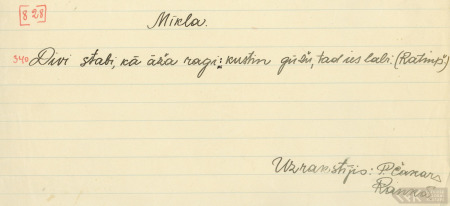 828
Mīkla.
340 Divi stabi, kā āža ragi: kustin gūšu, tad ies labi. (Ratiņš)
Uzrakstījis: P. Čakars
Rankā